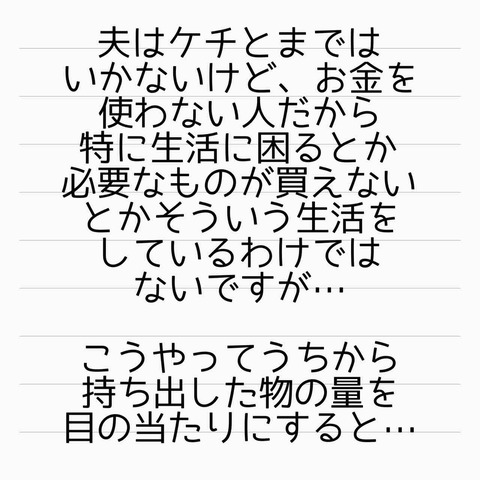 夫はケチとまでは
いかないけど、お金を
使わない人だから
特に生活に困るとか
必要なものが買えない
とかそういう生活を
しているわけでは
ないですが…
こうやってうちから
持ち出した物の量を
目の当たりにすると…